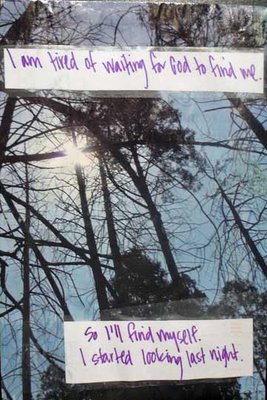 I am tired of waiting for God to find me.
So I'll find myself.
I started looking last night.